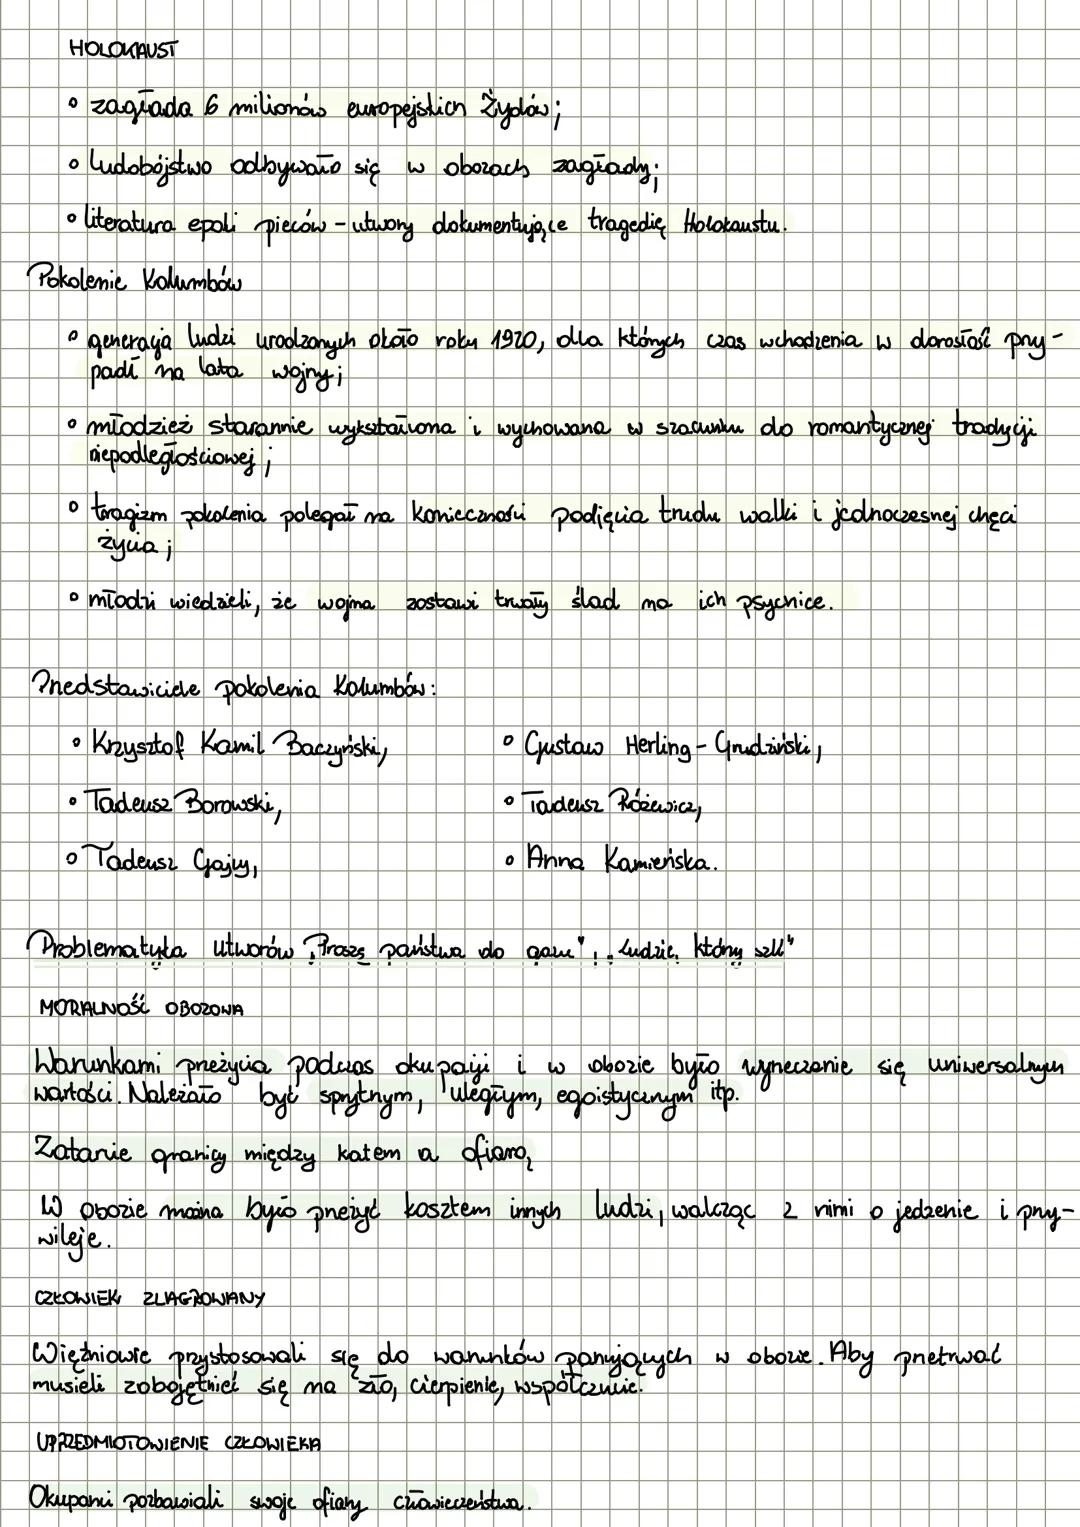 HOLOKAUST
• zagłada 6 milionów europejskich Żydów;
• ludobójstwo odbywało się w obozach zagłady;
• literatura epoki pieców - utwory dokumentujące tragedię Holokaustu.
Pokolenie Kolumbów
• generacja ludzi urodzonych około roku 1920, dla których czas wchodzenia w dorosłość przy-
padł na lata wojny;
• młodzież starannie wykształcona i wychowana w szacunku do romantycznej tradycji
niepodległościowej;
• tragizm pokolenia polegał na konieczności podjęcia trudu walki i jednoczesnej chęci
życia;
• młodzi wiedzieli, że wojna zostawi trwały ślad na ich psychice.
Przedstawiciele pokolenia Kolumbów:
• Krzysztof Kamil Baczyński, • Gustaw Herling-Grudziński,
• Tadeusz Borowski, • Tadeusz Różewicz,
• Tadeusz Gajcy, • Anna Kamieńska.
Problematyka utworów „Proszę państwa do gazu", „Ludzie, którzy szli"
MORALNOŚĆ OBOZOWA
Warunkami przeżycia podczas okupacji i w obozie było wyrzeczenie się uniwersalnych
wartości. Należało być sprytnym, uległym, egoistycznym itp.
Zatarcie granicy między katem a ofiarą
W obozie można było przeżyć kosztem innych ludzi, walcząc z nimi o jedzenie i przy-
wileje.
CZŁOWIEK ZLAGROWANY
Więźniowie przystosowali się do warunków panujących w obozie. Aby przetrwać
musieli zobojętnieć się na zło, cierpienie, współczucie.
UPRZEDMIOTOWIENIE CZŁOWIEKA
Okupanci pozbawiali swoje ofiary człowieczeństwa.